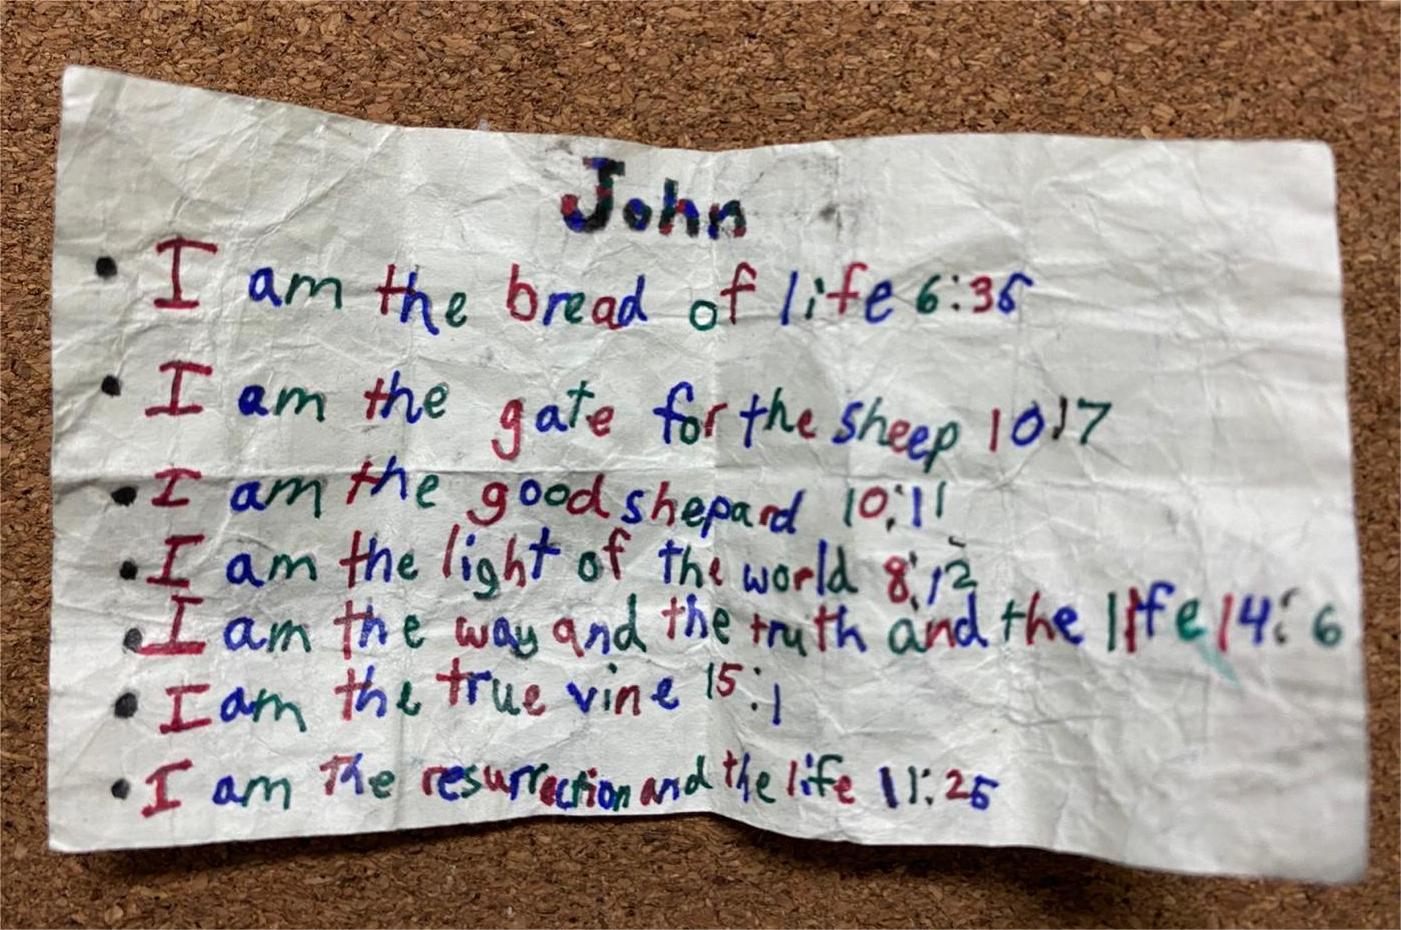 John
• I am the bread of life 6:35
• I am the gate for the sheep 10:7
• I am the good shepard 10:11
• I am the light of the world 8:12
• I am the way and the truth and the life 14:6
• I am the true vine 15:1
• I am the resurrection and the life 11:25